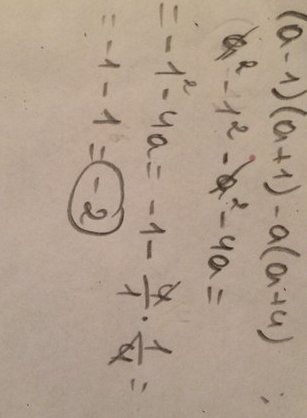 (a-1)(a+1)-a(a+4)
a²-1²-a²-4a=
=-1²-4a=-1-4/1·1/4=
=-1-1=-2